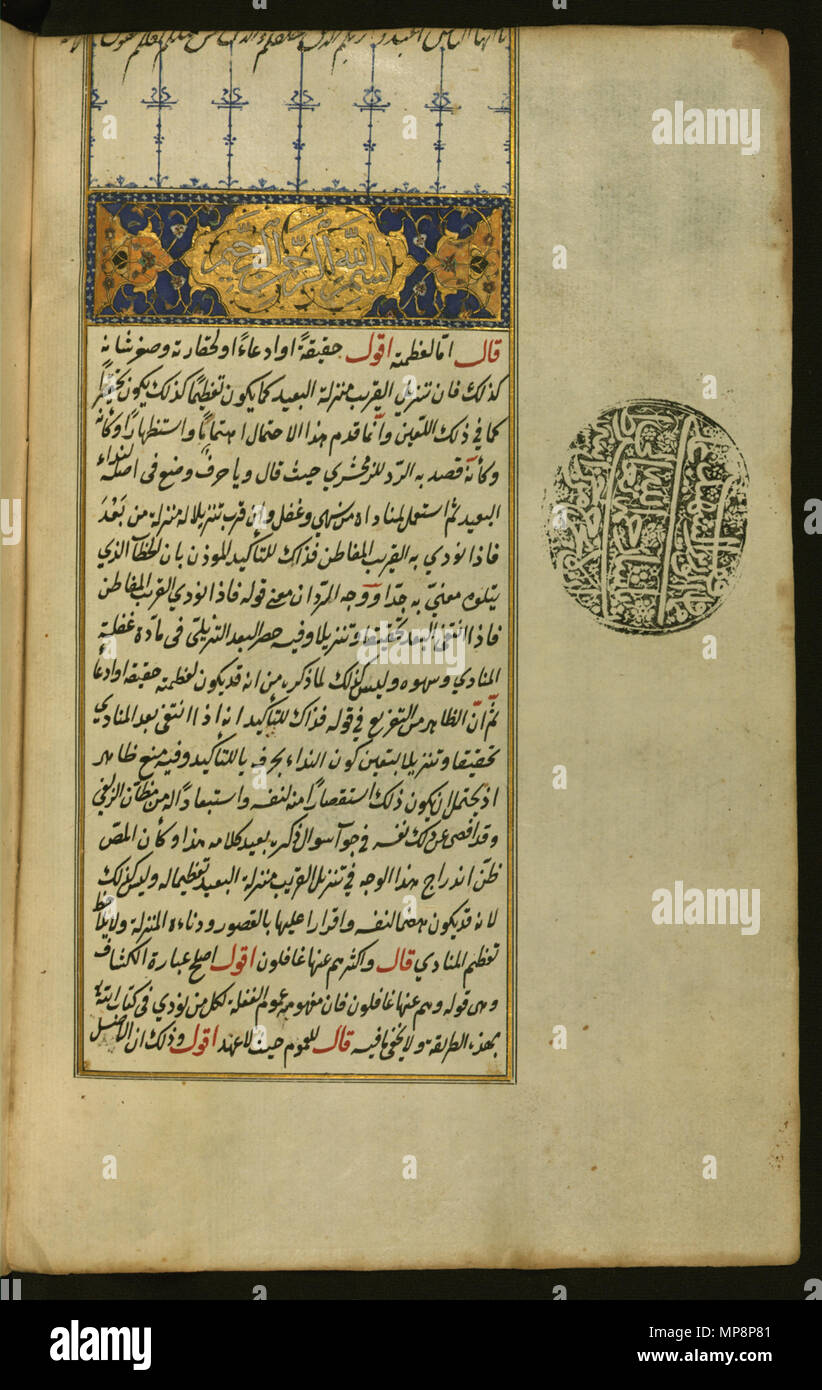 بسم الله الرحمن الرحيم
قال اما لعظمته اقول حقيقةً او ادعاءً او لحقارته وصغر شانه
كذلك فان تنزيل القريب منزلة البعيد كما يكون تعظيمًا كذلك يكون تحقيرًا
كما في ذلك اللعين وانما قدم هذا الاحتمال اهتمامًا واستظهارًا وكانه
وكأنه قصد به الرد للزمخشري حيث قال ويا حرف وضع في اصله لنداء
البعيد ثم استعمل لمناداة من سهى وغفل وان قرب تنزيلا له منزلة من بَعُدَ
فاذا نودي به القريب المفاطن فذاك للتأكيد الموذن بان الخطاب الذي
يتلوه معنيّ به جدّا ووجه الرد ان معنى قوله فاذا نودي القريب المفاطن
فاذا انتفى البعد تحقيقا وتنزيلا وفيه حصر البعد التنزيلي في مادة غفلة
المنادي وسهوه وليس كذلك لما ذكره من انه قد يكون لعظمته حقيقة او ادعاءً
ثم انّ الظاهر من التفريع في قوله فذاك للتأكيد انه اذا انتفى بعد المنادي
تحقيقا وتنزيلا يتعين كون النداء بحرفه يا للتأكيد وفيه منع ظاهر
اذ يحتمل ان يكون ذلك استقصارًا منه لنفسه واستبعادًا له من مظان الزلفى
وقد افصح عن ذلك نفسه في جواب سوال ذكره بعيد كلامه هذا وكأن المص
ظن اندراج هذا الوجه في تنزيل القريب منزلة البعيد تعظيما له وليس كذلك
لانه قد يكون هضما لنفسه واقرارا عليها بالقصور ودناءة المنزلة ولا يلاحظ
تعظيم المنادي قال واكثرهم عنها غافلون اقول اصلح عبارة الكشاف
وهي قوله وهم عنها غافلون فان مفهومه عموم الغفلة لكل من نودي في كتاب الله
بهذه الطريقة ولا يخفى ما فيه قال للعموم حيث لا عهد اقول وذلك ان الاصل
alamy
Image ID: MP8P81
www.alamy.com